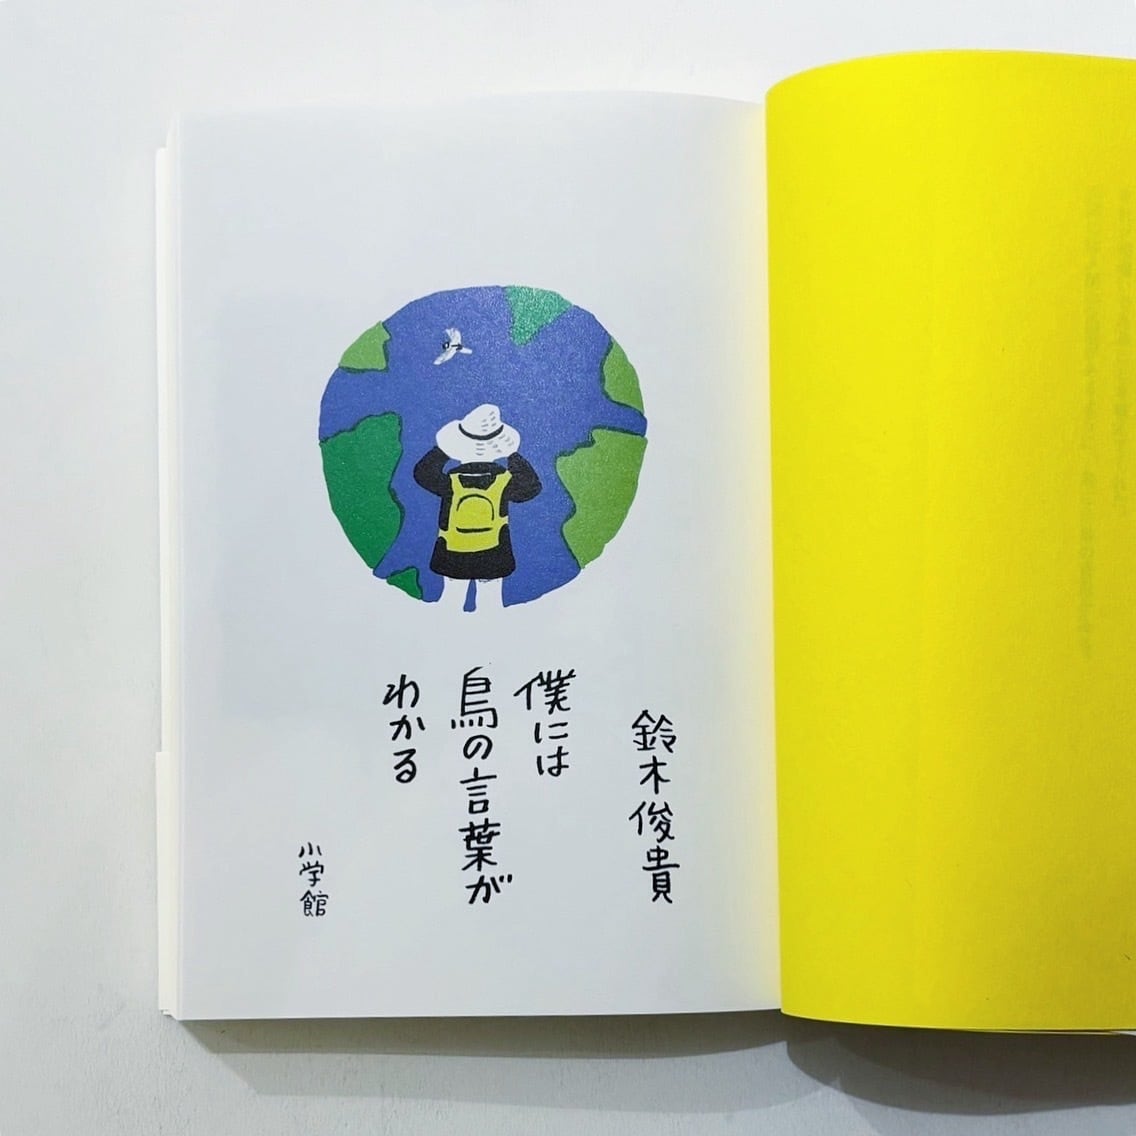 鈴木俊貴
僕には
鳥の言葉が
わかる
小学館